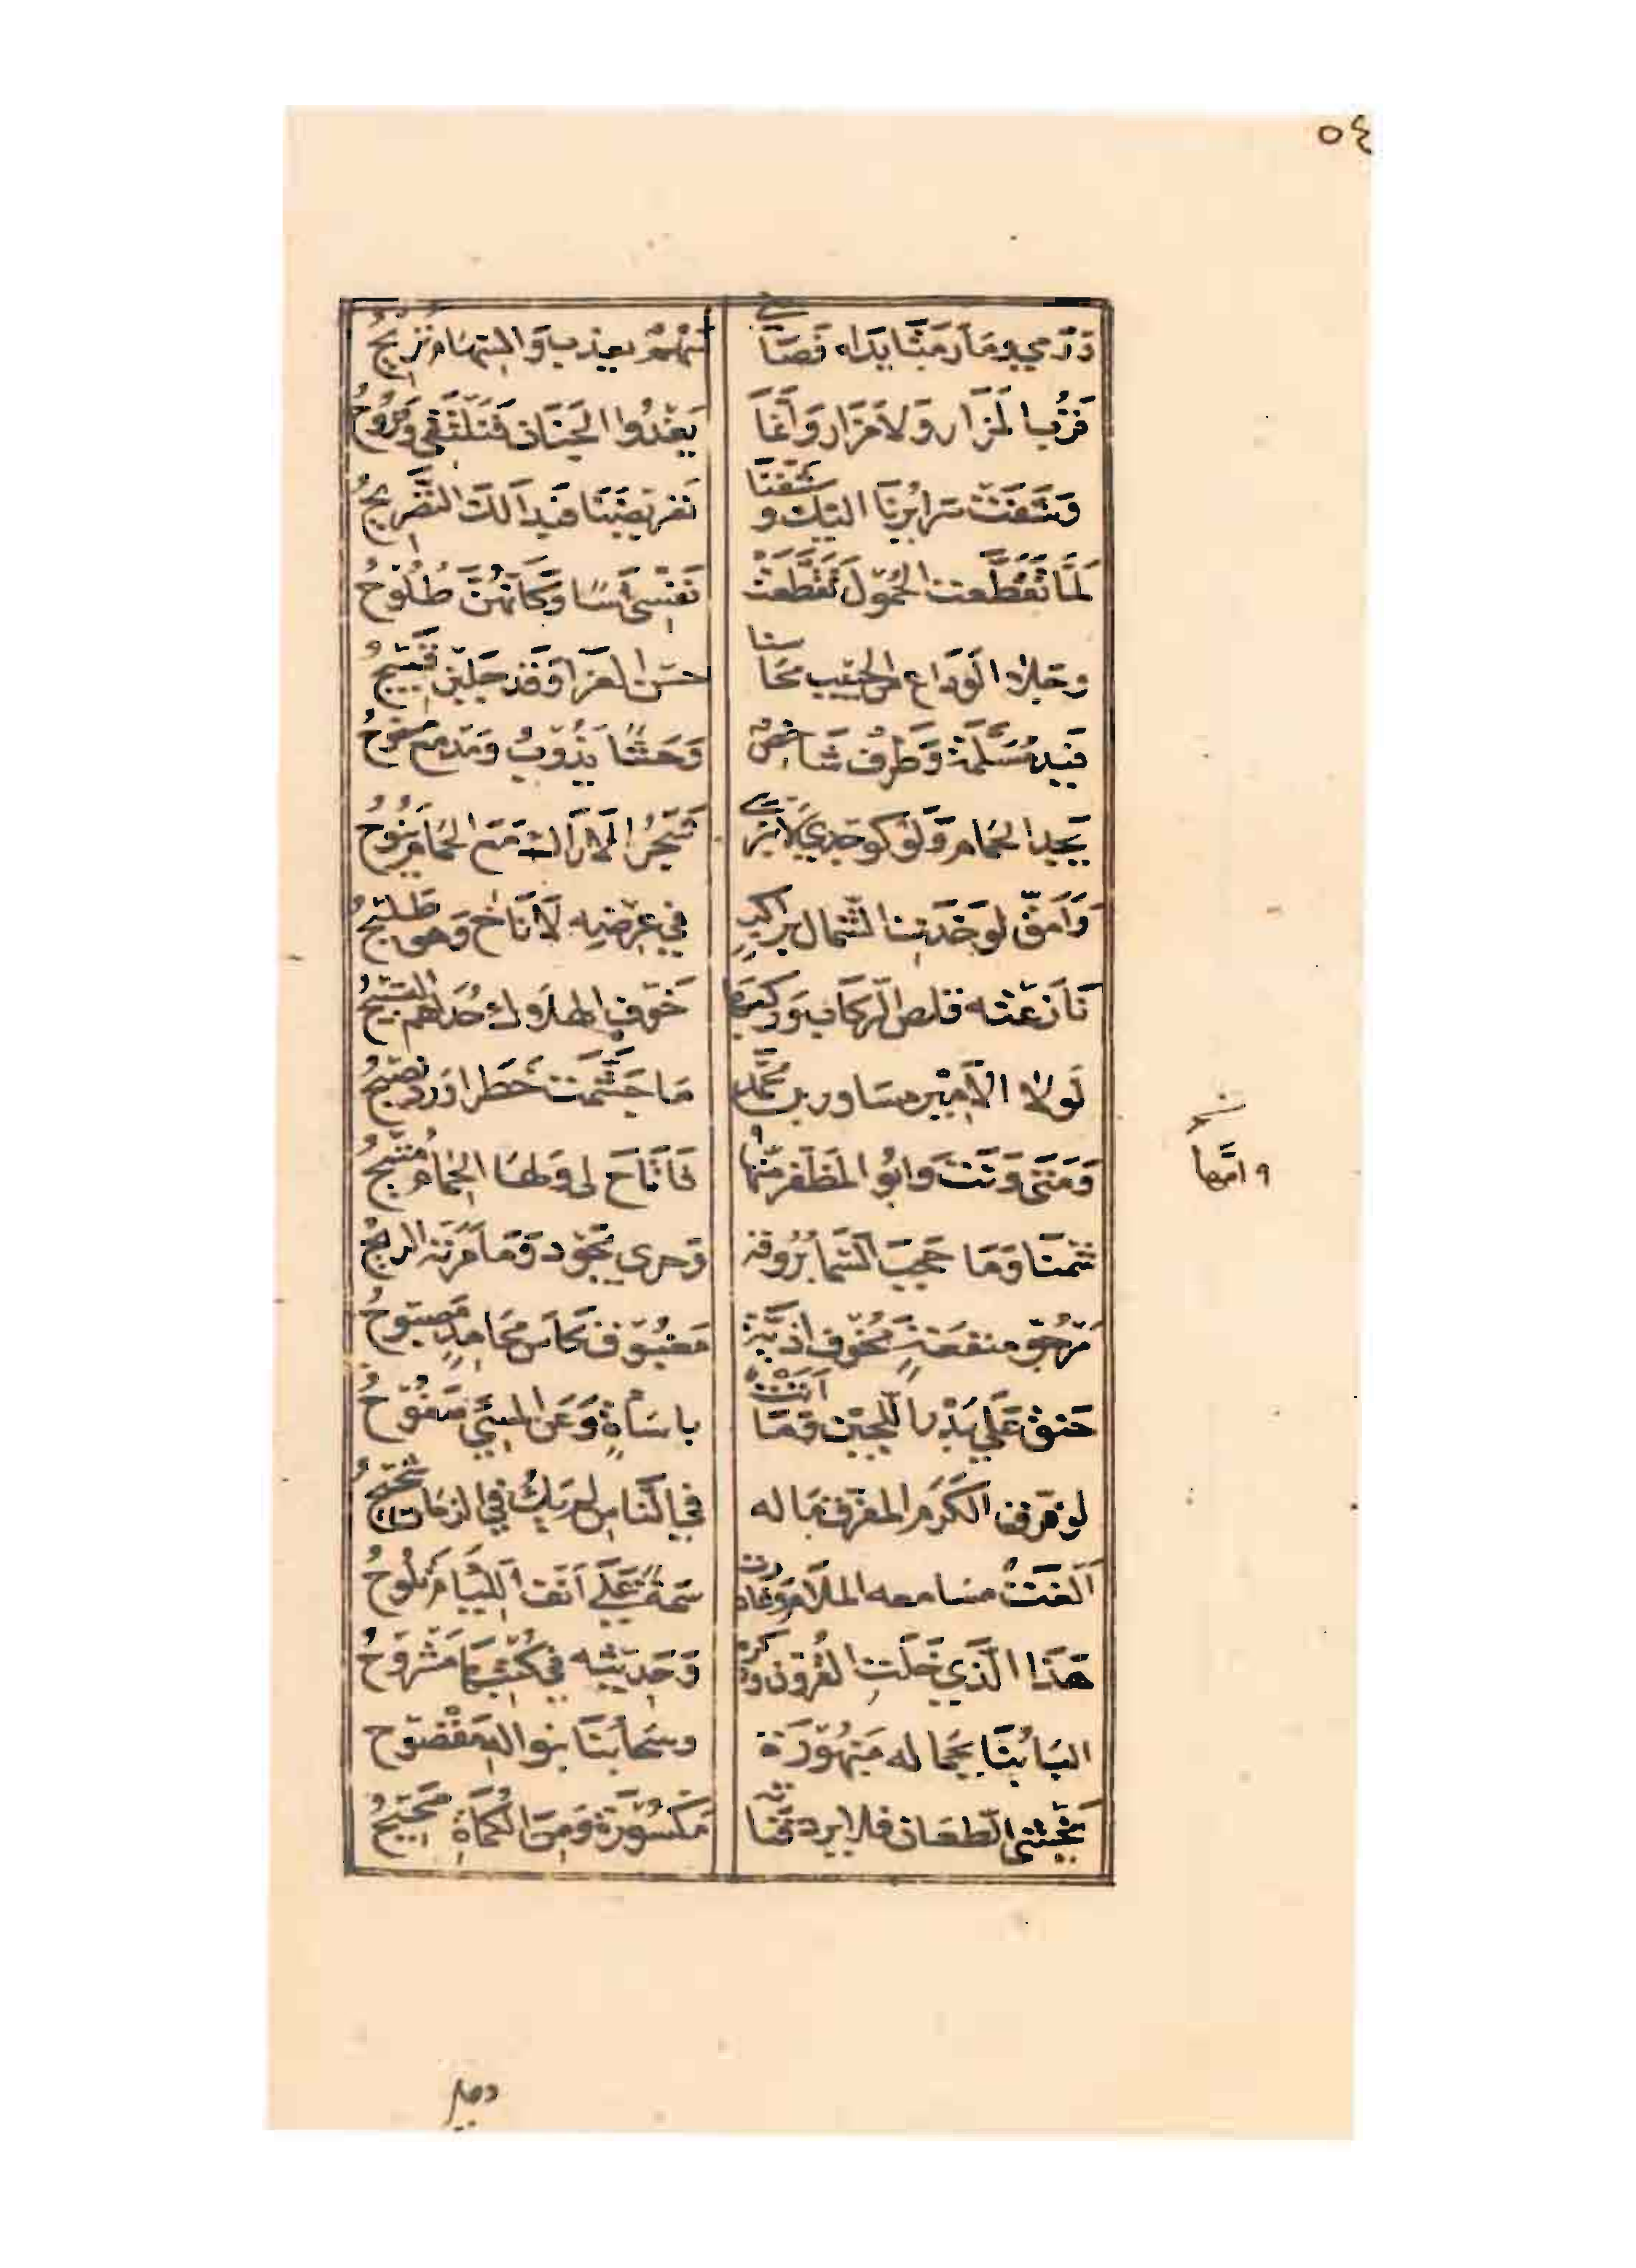 ٥٤
وَرَمي وَمَا رَمَتَا يَدَاه فَصَابَني سَهْمٌ يعذب وَالسِّهَام تُرِيحُ
قَرُبَ المَزَار وَلَا مَزَار وَإنمَا يَغْدُوا الجَنَان فَنَلْتَقي وَيَرُوحُ
وَفَشَتْ سَرَائِرُنَا اليك وشَفّنَا تَعْرِيضُنَا فَبَدَا لَكَ التَّصْرِيحُ
لَمَّا تَقَطَّعت الحُمُولُ تَقَطَّعَتْ نَفْسِي أَسًا وَكَأَنَّهُنَّ طُلُوحُ
وجلا الوَدَاع من الحبيب مَحَاسنا حسن العَزَا وَقَد جَلَيْنَ قَبِيحُ
فَيَد مُسَلِّمَة وَطَرْف شَاخِصٌ وَحَشًا يَذُوبُ وَمَدمع مسفوحُ
يَجِد الحَمَام وَلَوْ كوجدي لانبرى شَجَرُ الأَرَاك مَعَ الحَمَام يَنُوحُ
وَأَمَقّ لَو خَدَت الشَّمال براكبٍ في عرضه لَأَنَاخ وَهو طَليحُ
نَازَعْته قلص الرِّكَاب وَركبها خَوف الهلاك حُدَاهم التسبيحُ
لَولا الأَمير مسَاور بن محمد مَا جَشِمَت خَطَرا وَرد نصيحُ
وَمَتى وَنَت وَابُو المُظَفر أمّها فَأَتَاحَ لى وَلها الحِمَام مُتيحُ
٩ امّها
شِمنَا وَمَا حجبَ السَّمَا بُرُوقه وَحرى يَجُود وَمَا مَرَته الريحُ
مَرْجُو منفعَةٍ مَخُوف اذيَّة مَغبُوق كَاس مَحَامدٍ مَصبُوحُ
حَنِق عَلَى بِدَر اللُّجين وَمَا أتَتْ باسَاءةٍ وَعَن المسِيء صَفُوحُ
لو فرق الكَرَم المفرق مَاله في النَّاس لم يَك في الزمَان شحيحُ
ألغَتْ مسَامعه الملَام وَغادرت سِمَةً عَلَى أنف اللِّئَام تَلُوحُ
هَذَا الّذي خَلَتِ القُرُون وذكره وَحَدِيثه في كُتْبِهَا مَشْرُوحُ
البَابُنَا بجَماله مَبْهُورَة وسَحابنَا بنواله مَفْضُوح
يَغْشَى الطّعَان فلا يرد قَنَاته مَكْسُورَة وَمِن الكُمَاةِ صَحِيحُ